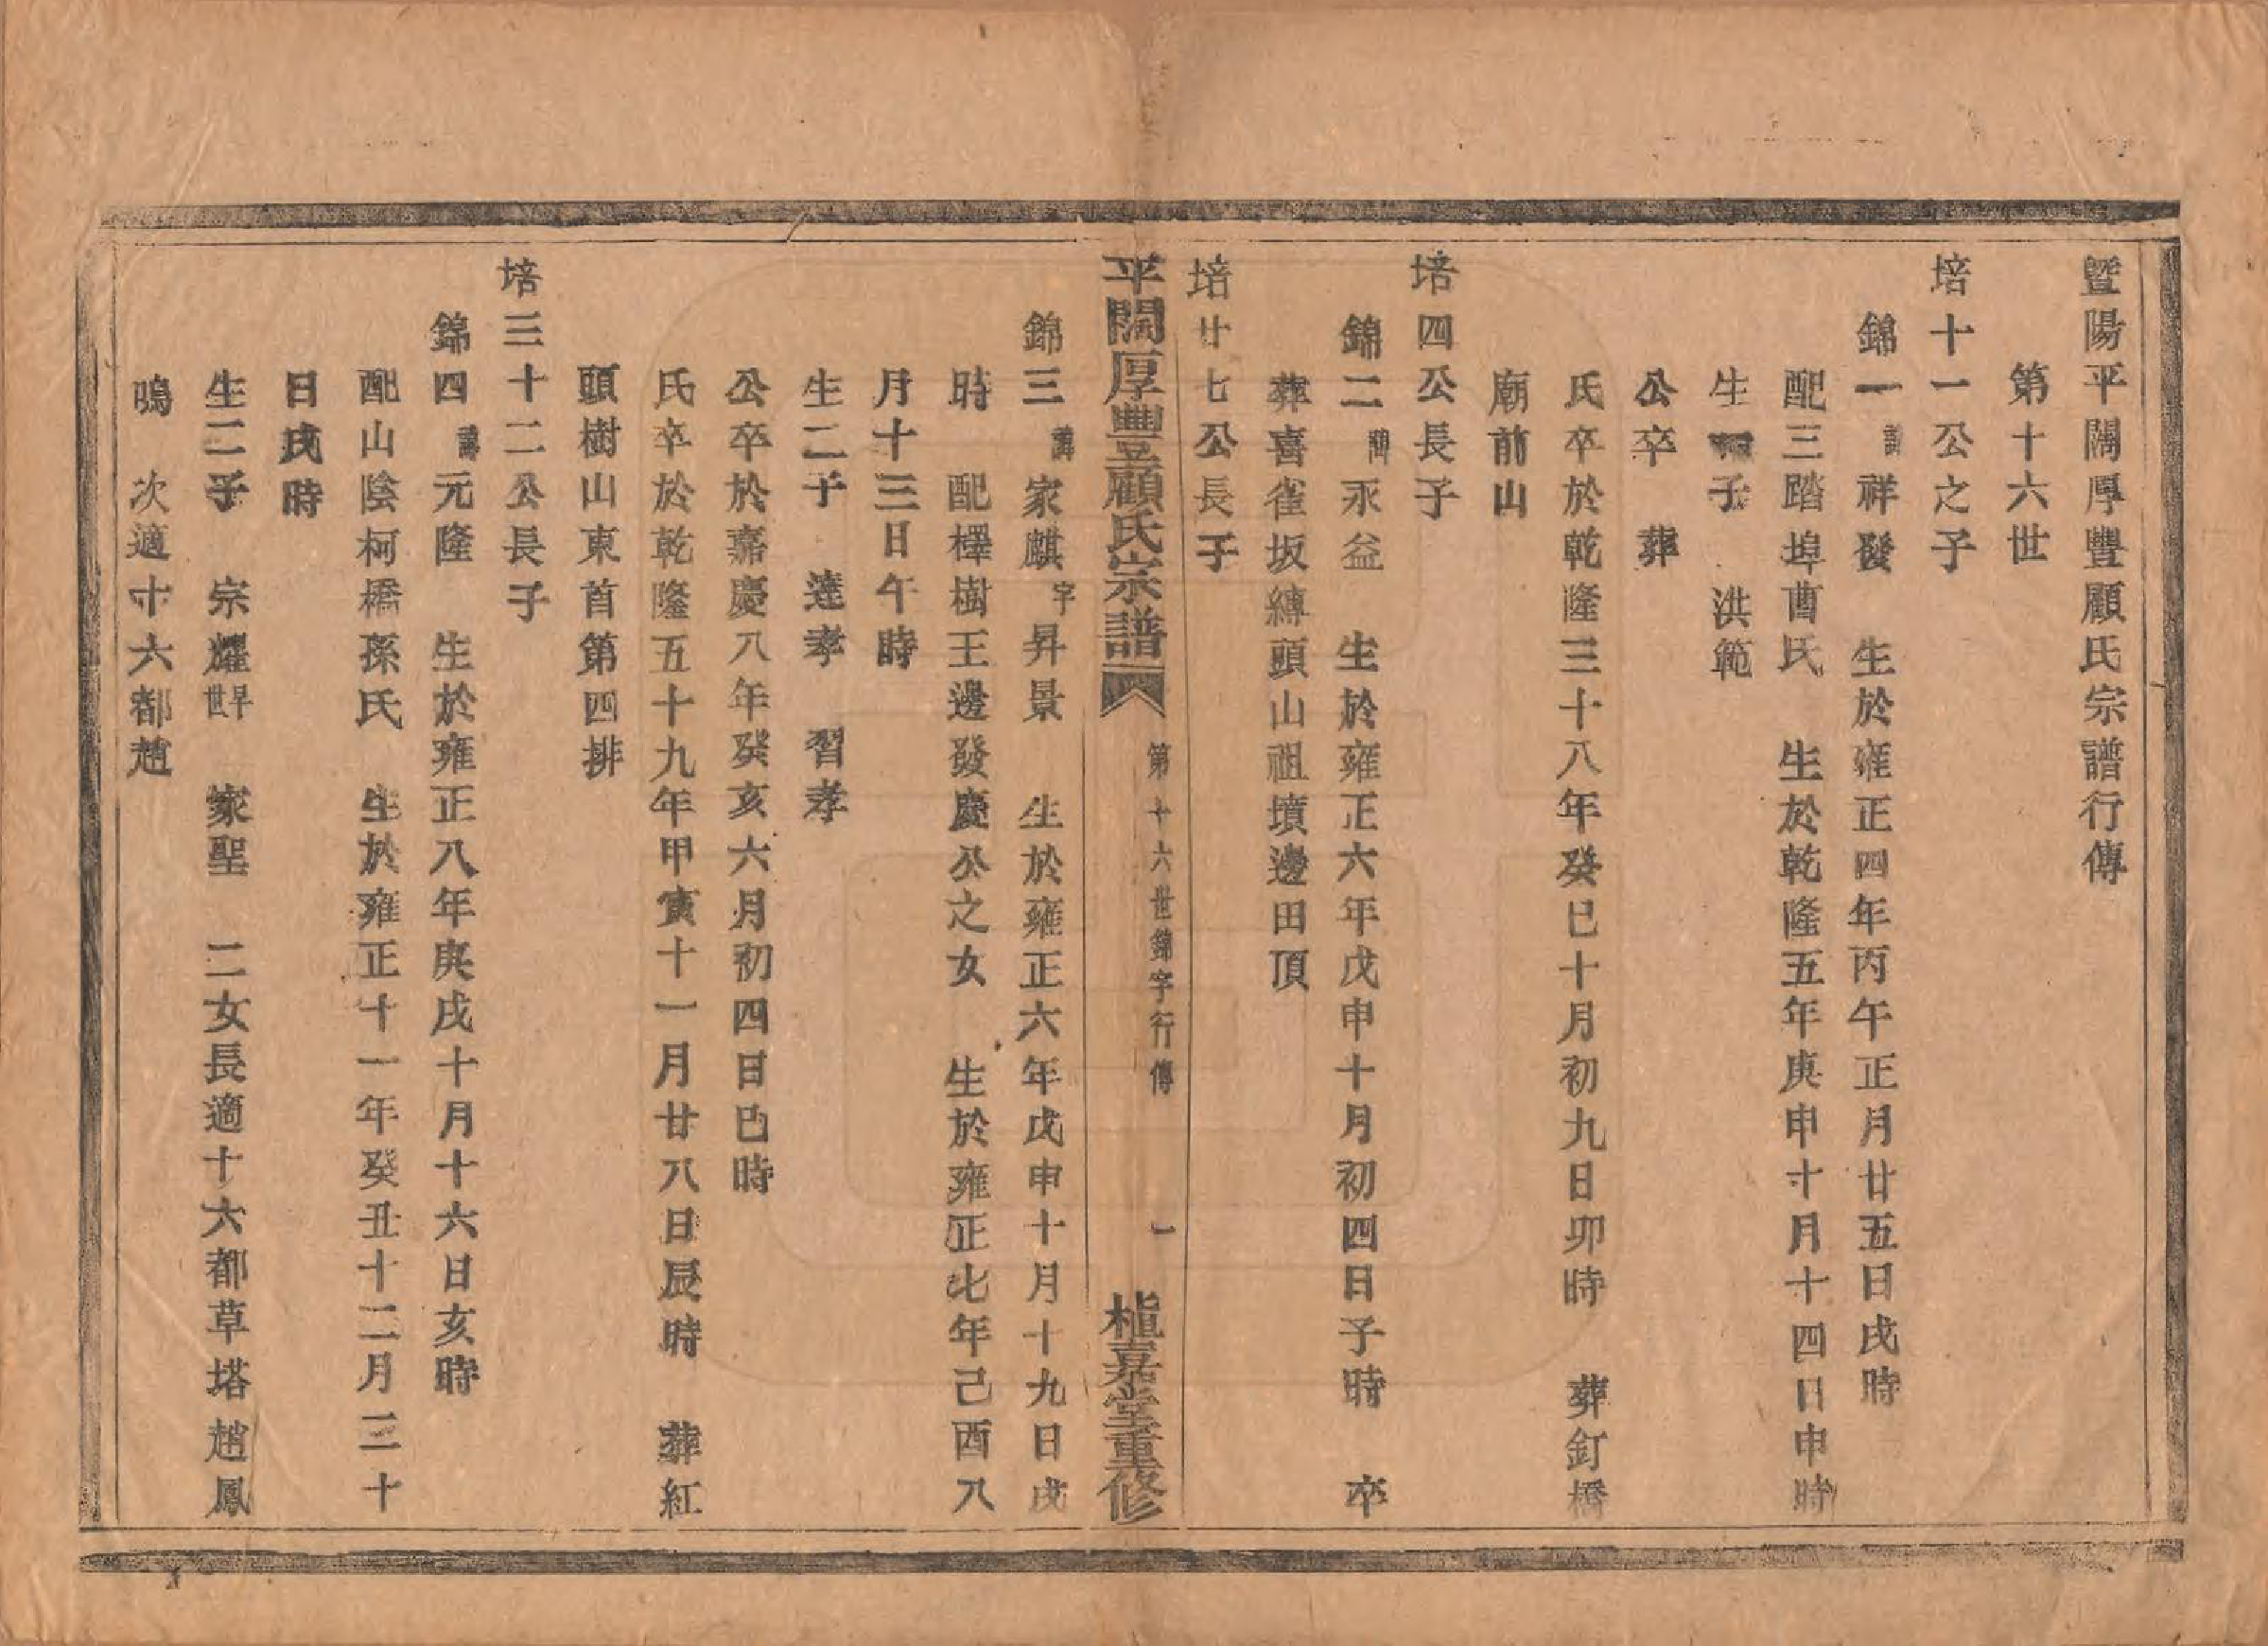 暨陽平闊厚豐顧氏宗譜行傳
第十六世
培十一公之子
錦一諱祥發 生於雍正四年丙午正月廿五日戌時
配三踏埠曹氏 生於乾隆五年庚申十月十四日申時
生一子 洪範
公卒 葬
氏卒於乾隆三十八年癸巳十月初九日卯時 葬釘橋
廟前山
培四公長子
錦二諱永益 生於雍正六年戊申十月初四日子時 卒
葬喜雀坂縛頭山祖墳邊田頂
培廿七公長子
平闊厚豐顧氏宗譜 第十六世錦字行傳 一 植嘉堂重修
錦三諱家麒字昇景 生於雍正六年戊申十月十九日戌
時 配檡樹王邊發慶公之女 生於雍正七年己酉八
月十三日午時
生二子 達孝 習孝
公卒於嘉慶八年癸亥六月初四日巳時
氏卒於乾隆五十九年甲寅十一月廿八日辰時 葬紅
頭樹山東首第四排
培三十二公長子
錦四諱元隆 生於雍正八年庚戌十月十六日亥時
配山陰柯橋孫氏 生於雍正十一年癸丑十二月三十
日戌時
生二子 宗耀早世 家聖 二女長適十六都草塔趙鳳
鳴 次適十六都趙